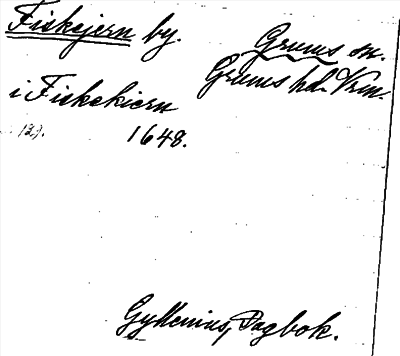 Fiskejern by.
Grums sn.
Grums hd. Vrm.
i Fiskekiern
127. 1648.
Gyllenius, Dagbok.